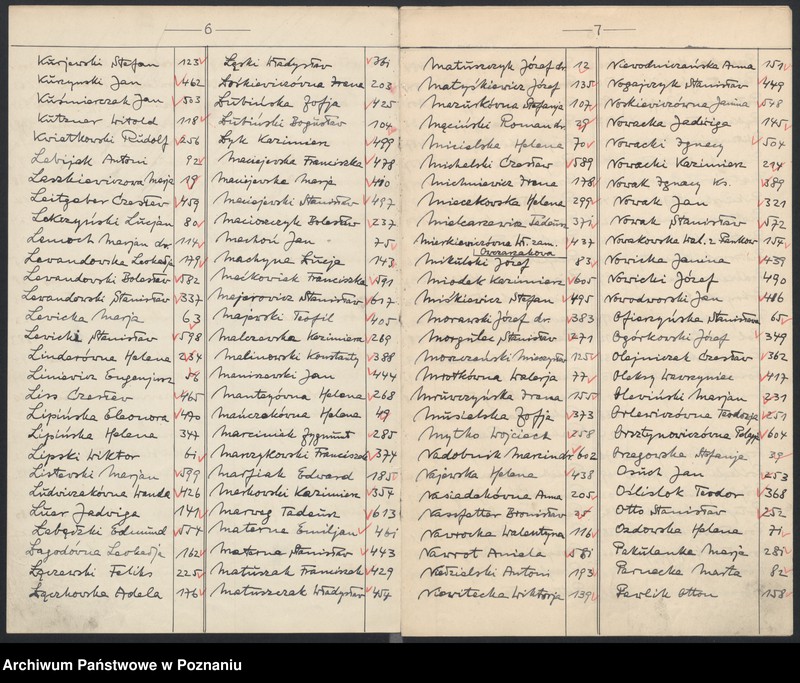 6
Kurjewski Stefan 123
Kurzynski Jan 462
Kuśmierczak Jan 503
Kutzner Witold 118
Kwiatkowski Rudolf 256
Lebijak Antoni 92
Laszkiewiczowa Marja 19
Leitgeber Czesław 459
Lekczyński Lucjan 80
Lemoch Marjan dr. 114
Lewandowska Leokadja 179
Lewandowski Bolesław 582
Lewandowski Stanisław 337
Lewicka Marja 63
Lewicki Stanisław 598
Lindnerówna Helena 234
Liniewicz Eugenjusz 56
Liss Czesław 465
Lipińska Eleonora 490
Lipińska Helena 347
Lipski Wiktor 61
Listewski Marjan 599
Ludwiczakówna Wanda 426
Luer Jadwiga 141
Łabędzki Edmund 554
Łagodówna Leokadja 162
Łączewski Feliks 225
Łączkowska Adela 176
Łęski Władysław 361
Łośkiewiczówna Irena 203
Łubieńska Zofja 425
Łubiński Bogusław 104
Łyk Kazimierz 499
Maciejewska Franciszka 478
Maciejewska Marja 410
Maciejewski Stanisław 497
Macioszczyk Bolesław 237
Machoń Jan 75
Machyna Łucja 143
Maćkowiak Franciszka 591
Majerowicz Stanisław 617
Majewski Teofil 405
Malczewska Kazimiera 269
Malinowski Konstanty 388
Maniszewski Jan 444
Manteyówna Helena 268
Mańczakówna Helena 49
Marciniak Zygmunt 285
Marczykowski Franciszek 374
Marfiak Edward 185
Markowski Kazimierz 354
Marweg Tadeusz 613
Materne Emiljan 461
Materna Stanisław 443
Matuszak Franciszek 429
Matuszczak Władysław 454
7
Matuszczyk Józef dr. 12
Matyśkiewicz Józef 135
Mazurkówna Stefanja 107
Męciński Roman dr. 29
Micielska Helena 70
Michalski Czesław 589
Michniewicz Irena 178
Mieczkowska Helena 299
Mielcarzewicz Tadeusz 371
Mierkiewiczówna W. zam. 437
Owczarzakowa
Mikulski Józef 83
Miodek Kazimierz 605
Miśkiewicz Stefan 495
Morawski Józef dr. 383
Morgulec Stanisław 271
Moszczeński Mieczysław 125
Mrotkówna Walerja 77
Mruwczyńska Irena 155
Musielska Zofja 373
Mytko Wojciech 258
Nadobnik Marcin dr. 602
Najewska Helena 438
Nasiadakówna Anna 205
Nassfetter Bronisław 25
Nawrocka Walentyna 116
Nawrot Aniela 581
Niedzielski Antoni 193
Niewitecka Wiktorja 139
Niewodniczańska Anna 151
Nogajczyk Stanisław 449
Noskiewiczówna Janina 548
Nowacka Jadwiga 145
Nowacki Ignacy 504
Nowacki Kazimierz 214
Nowak Ignacy Ks. 389
Nowak Jan 321
Nowak Stanisław 572
Nowakowska Wal. z Pankow 154
Nowicka Janina 439
Nowicki Józef 490
Nowodworski Jan 486
Ofierzyńska Stanisława 65
Ogórkowski Józef 349
Olejniczak Czesław 362
Oleksy Wawrzyniec 417
Olewiński Marjan 231
Orlewiczówna Teodozja 251
Orsztynowiczówna Pelagja 604
Orzegowska Stefanja 29
Osuch Jan 253
Oślislok Teodor 368
Otto Stanisław 252
Ozdowska Helena 71
Pakulanka Marja 281
Parnecka Marta 82
Pawlik Otton 158
Archiwum Państwowe w Poznaniu